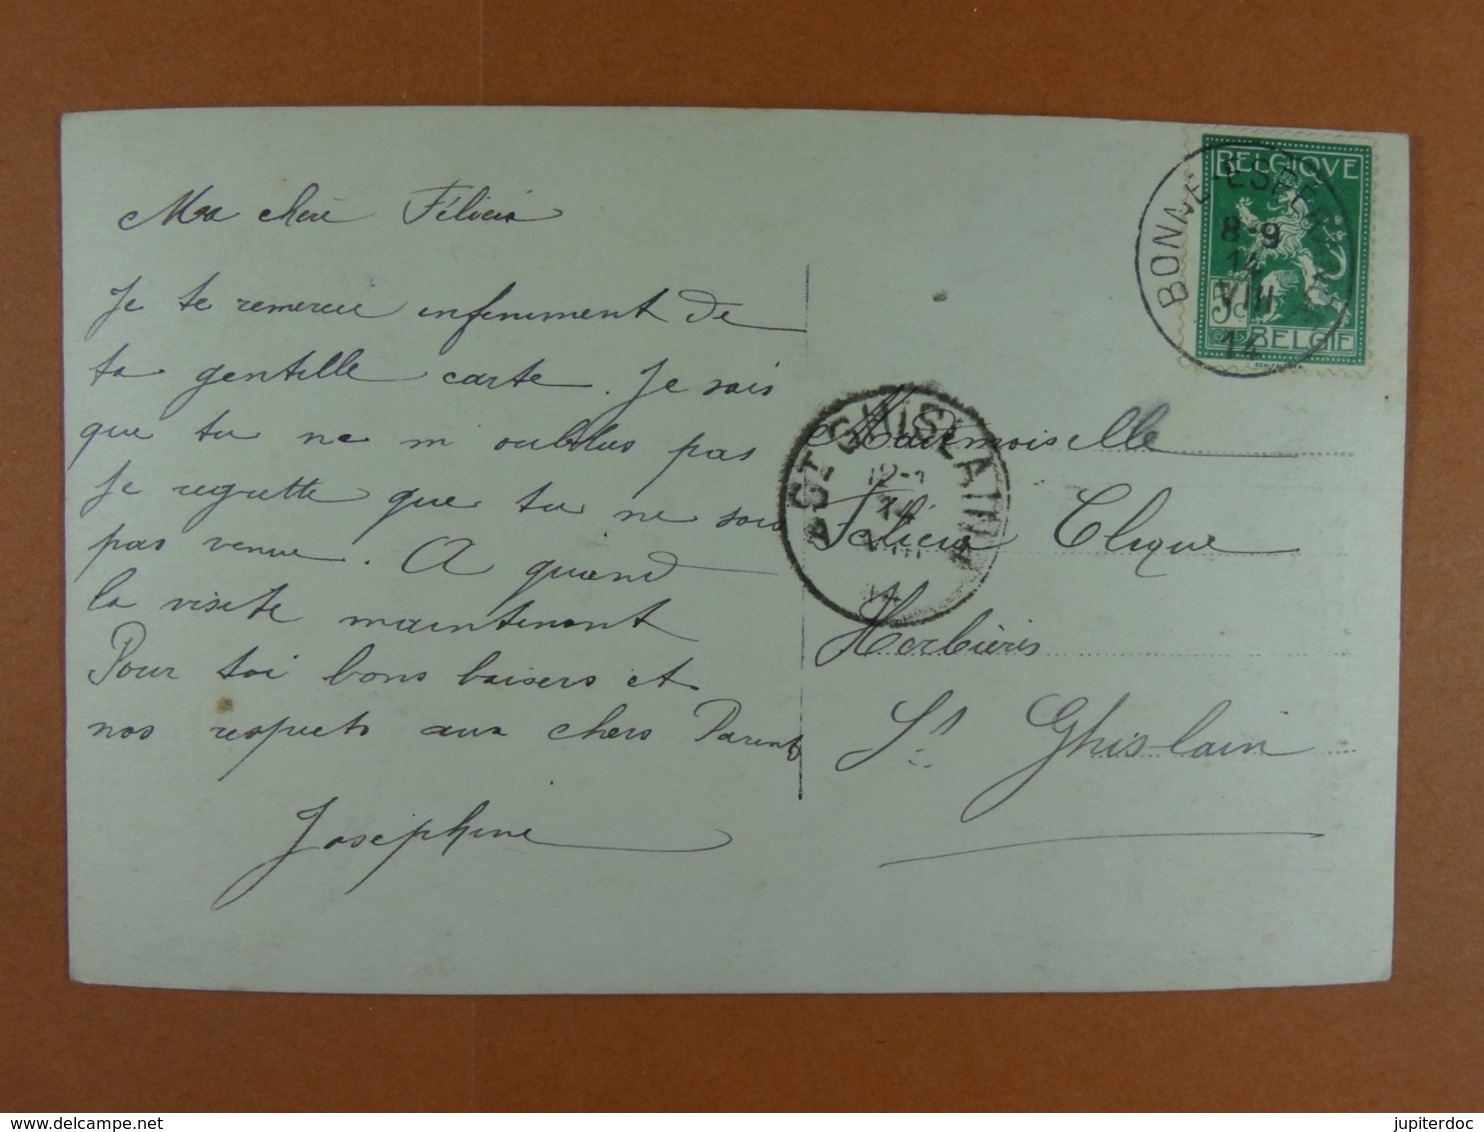 Ma chère Félicia
Je te remercie infeniment de
ta gentille carte. Je vois
que tu ne m'oublies pas
Je regrette que tu ne sois
pas venue. A quand
la visite maintenant
Pour toi bons baisers et
nos respects aux chers Parents
Joséphine
BELGIQUE
5c
BELGIE
BONNE-ESPERANCE
8-9
14
VIII
14
ST GHISLAIN
12-1
14
VIII
14
Mademoiselle
Felicia Clique
Herbières
St Ghislain
delcampe.net
jupiterdoc